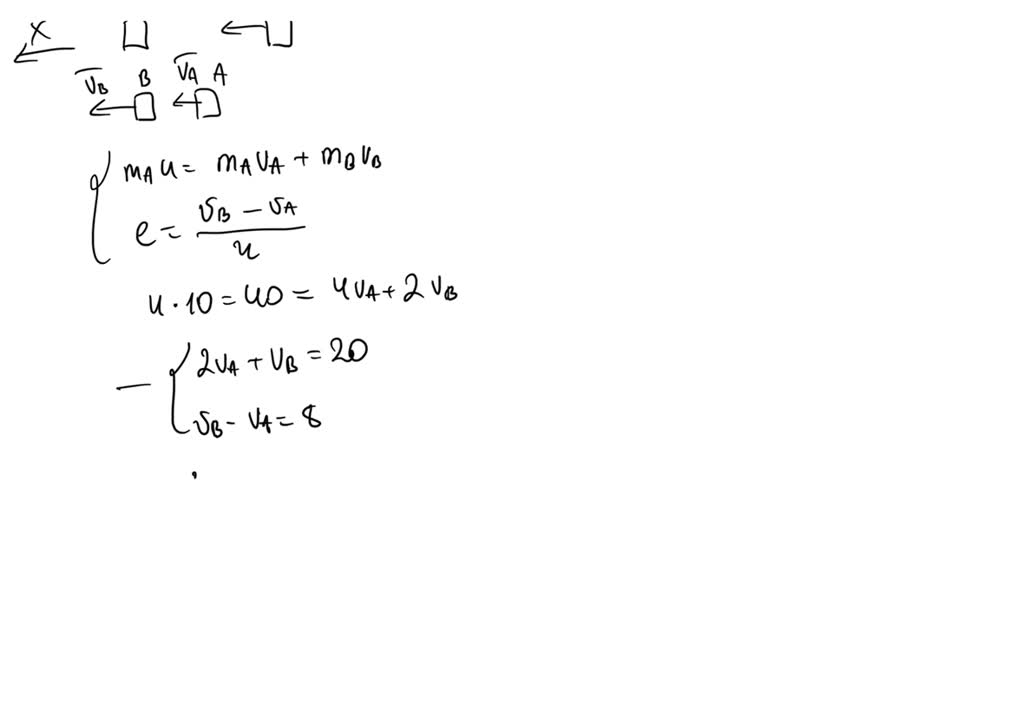 X
V̅B B V̅A A
mA u = mA VA + mB VB
e = (VB − VA) / u
4 · 10 = 40 = 4VA + 2VB
− { 2VA + VB = 20
VB − VA = 8